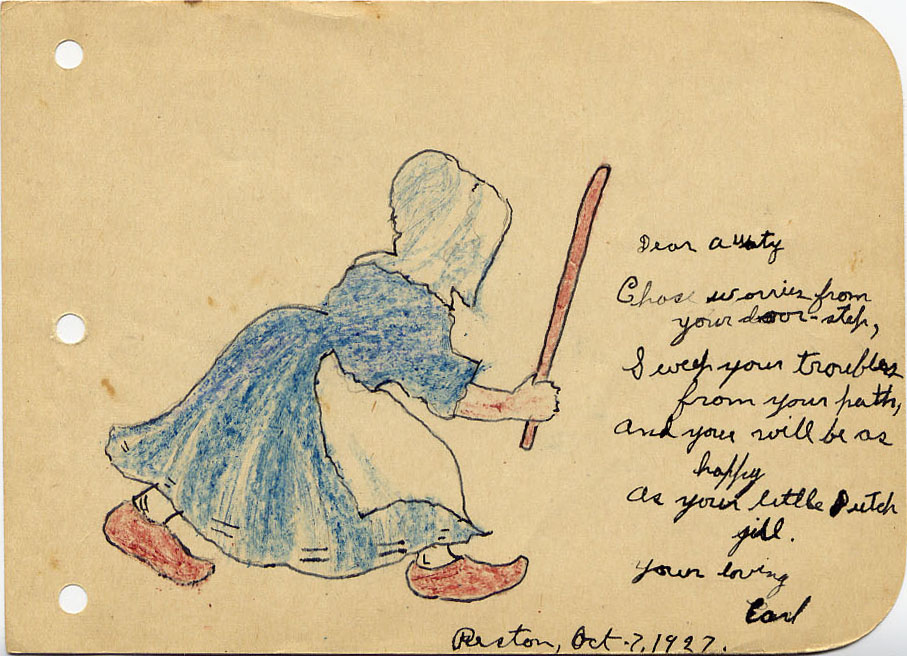 Dear Aunty
Chase worries from
your door-step,
Sweep your troubles
from your path,
And your will be as
happy
As your little Dutch
gill.
Your loving
Earl
Reston, Oct. 7, 1927.